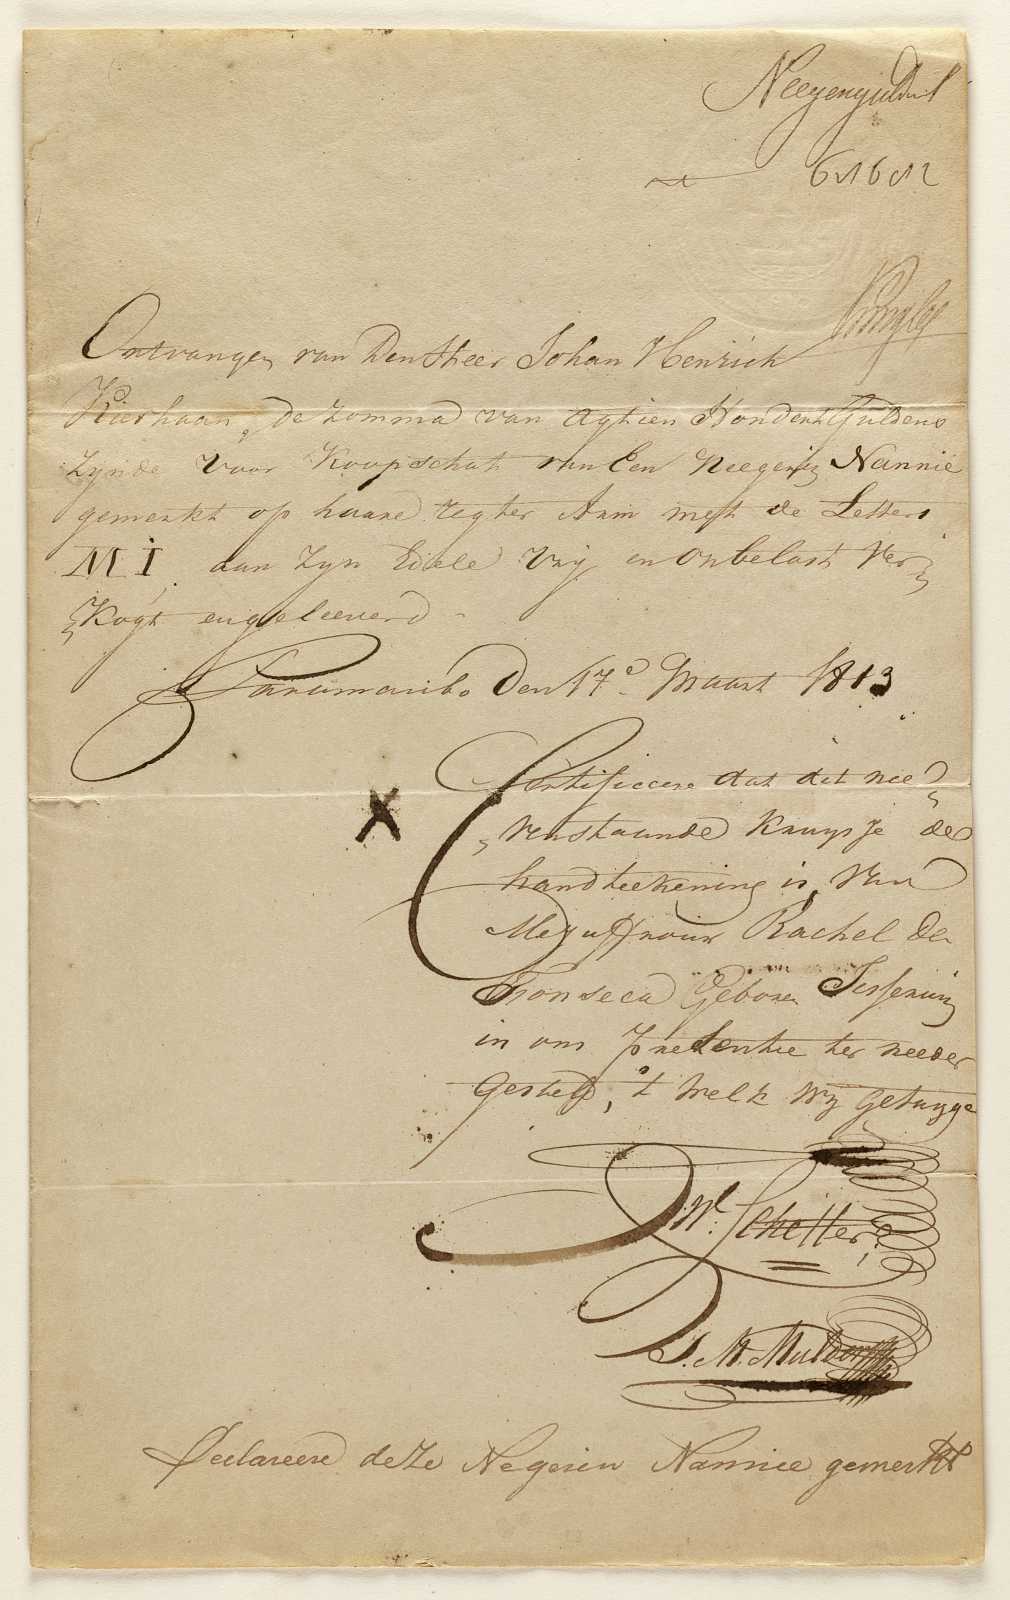 Neegenguldens
Ontvangen van Den Heer Johan Henrich
Kierhaan, de zomma van Agtien Hondert Guldens
zynde voor Koopschat van Een Neegerin Nannie
gemerkt op haare regter Arm mest de Letters
MI aan zyn Edele vry en onbelast Ver,,
,,Kogt en geleeverd -
Paramaribo Den 17e. Maart 1813
Certificeere dat dit nee,,
X ,,Venstaande Kruysje de
handteekening is, Van
Mejuffrouw Rachel De
Fonseca Geboren
in ons presentie ter needer
gesteld, 't welk wy getuyge
W. Scheffer
J. M. Mulder
Declareere deze Negerin Nannie gemerkt